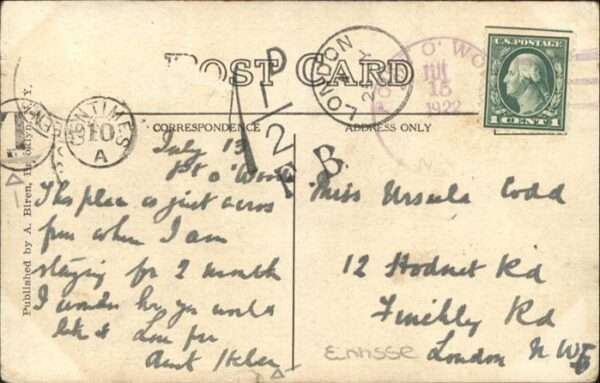 POST CARD
CORRESPONDENCE
ADDRESS ONLY
LONDON
O'WO
15
1922
U.S. POSTAGE
1 CENT 1
CENTIMES
10
A
T
1D
2
F.B.
Published by A. Biren, Brooklyn, N.Y.
July 13
Pt o' Woods
This place is just across
from where I am
staying for 2 months
I wonder how you would
like it Love from
Aunt Helen
Miss Ursula Codd
12 Hodnet Rd
Finchly Rd
London N W